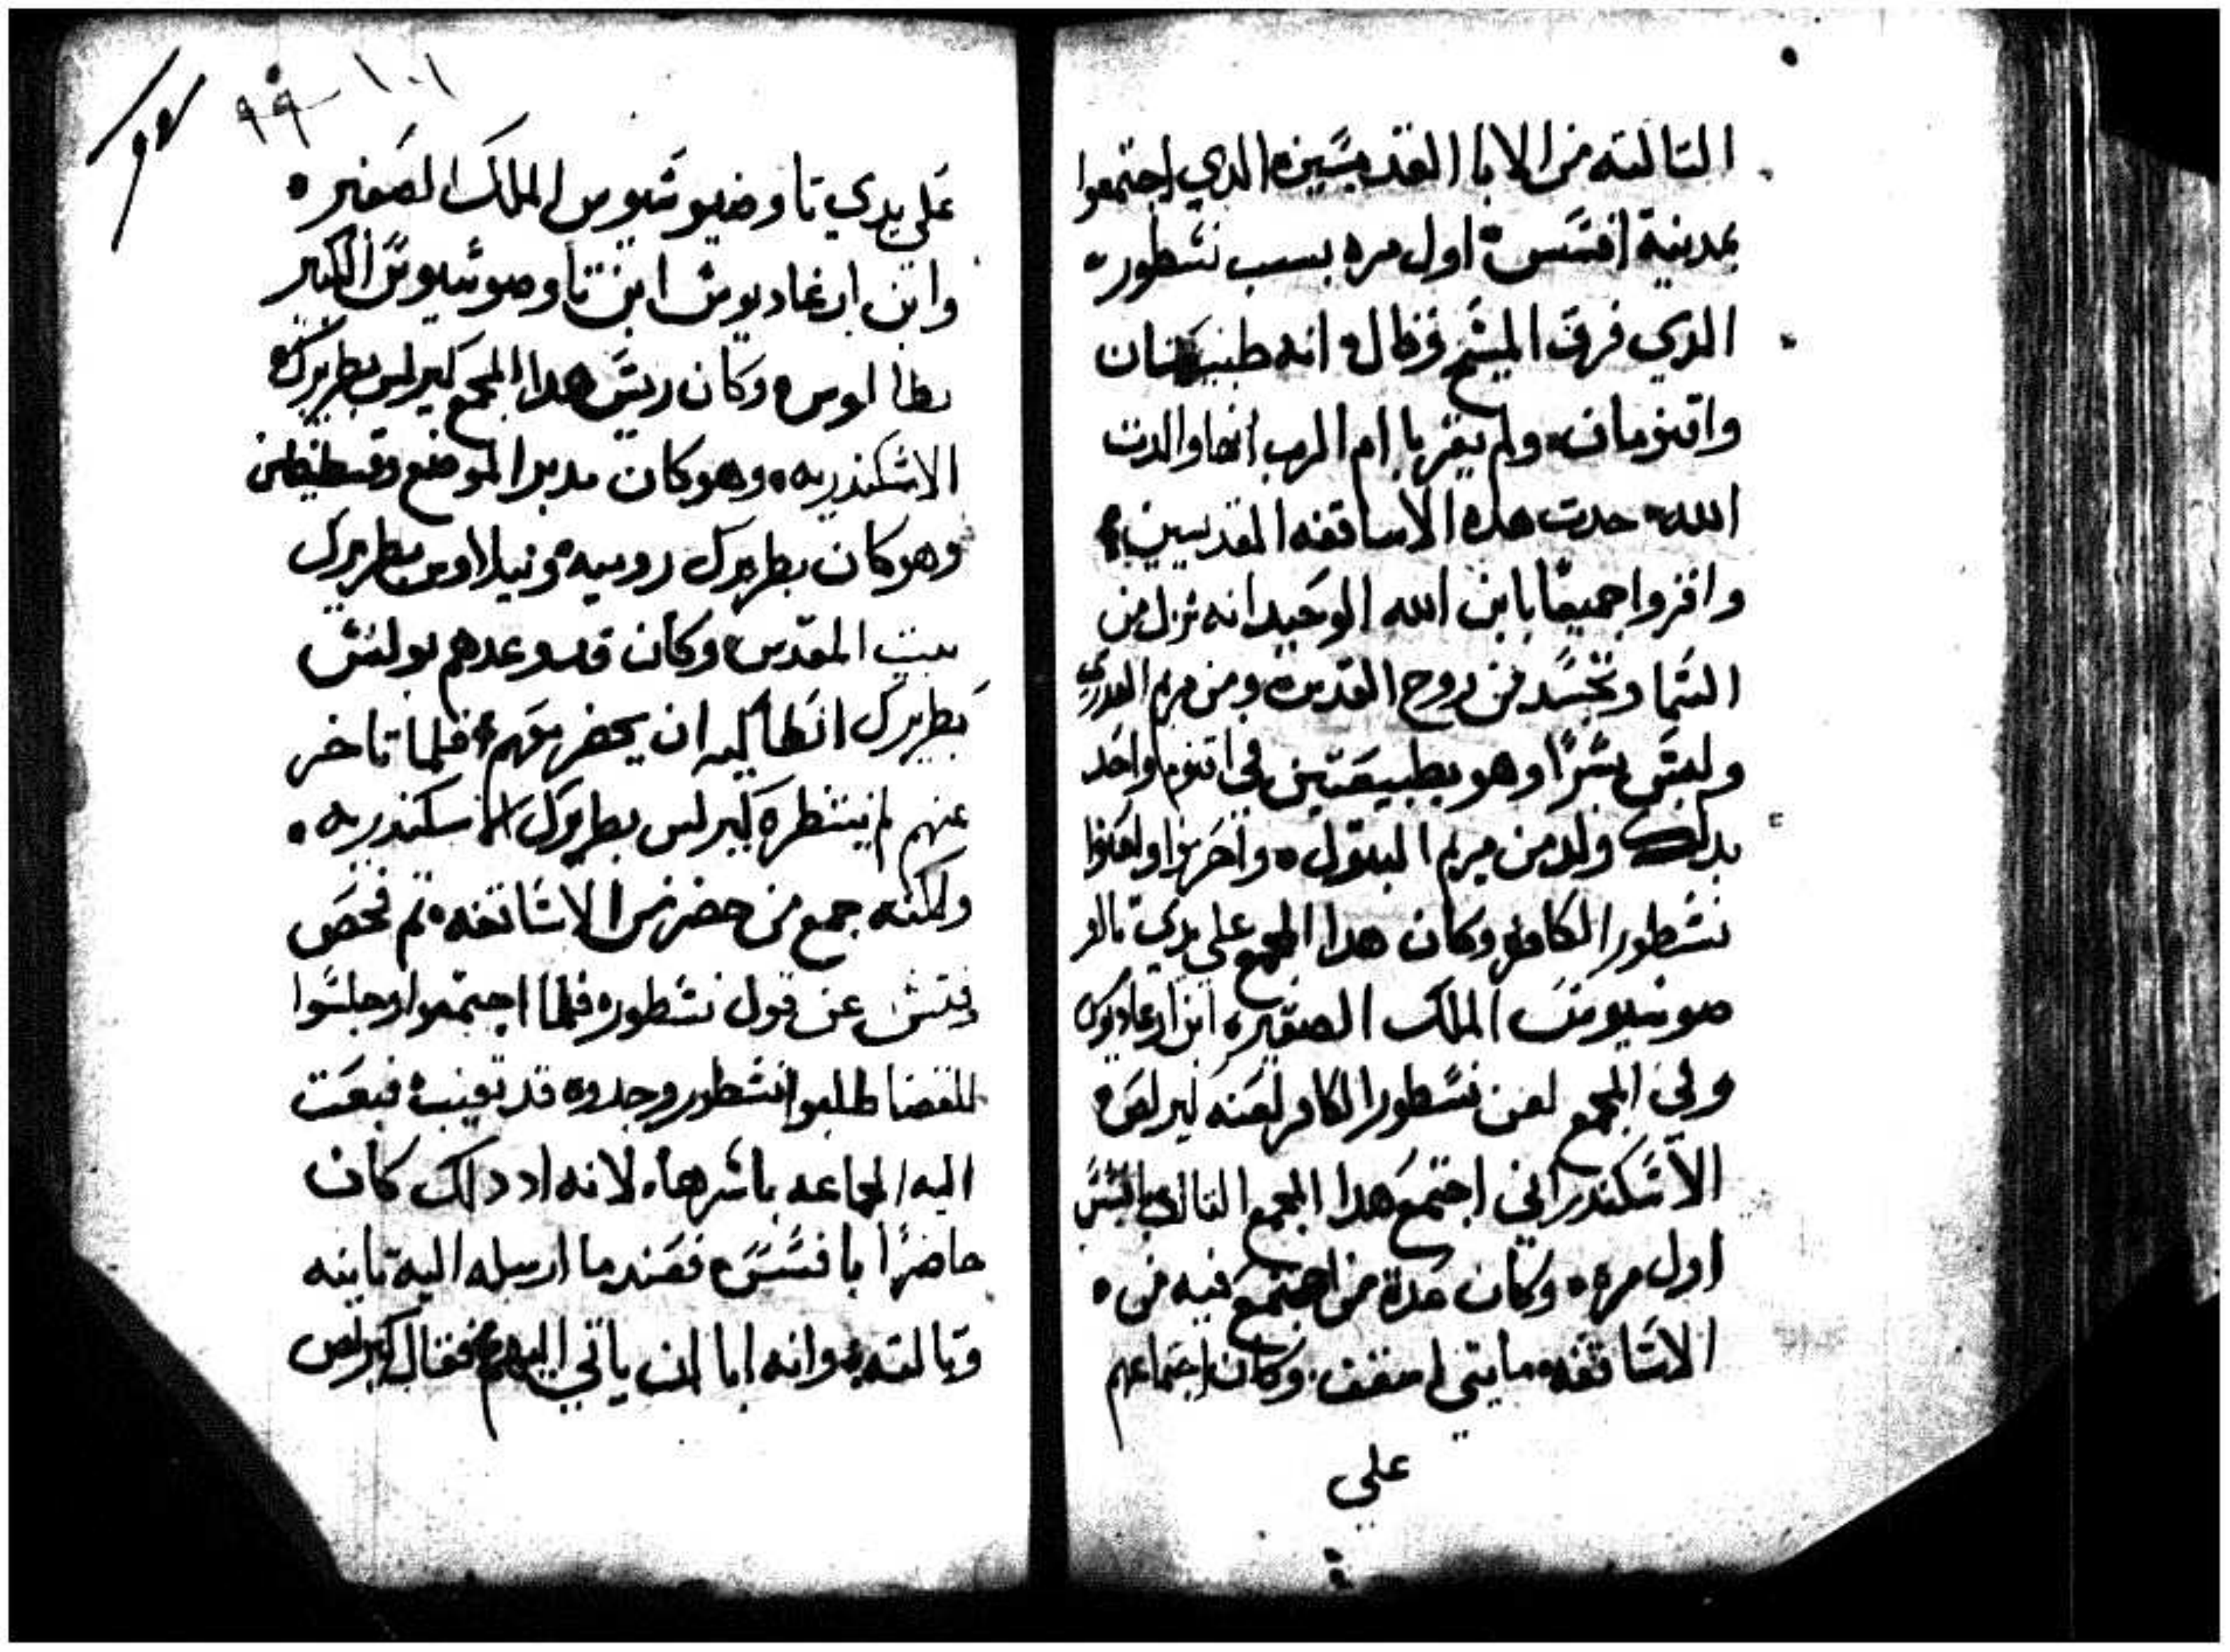 التالته من الابا القديسين الدي اجتمعوا
بمدينة افسس اول مره بسبب نسطور
الدي فرق المسيح وقال انه طبيعتان
واقنومان ولم يقر بام الرب انها والدت
الله حدت هده الاساقفه القديسين
واقروا جميعا بابن الله الوحيد انه نزل من
السما وتجسد من روح القدس ومن مريم العدري
ولبس بشرا وهو بطبيعتين في اقنوم واحد
بدلك ولد من مريم البتول واحرموا ولعنوا
نسطور الكافر وكان هدا المجمع علي يدي تااو
صوسيوس الملك الصغير ابن ارغاديوس
وفي المجمع لعن نسطور الكافر لعنه كيرلص
الاسكندراني اجتمع هدا المجمع التالت بافسس
اول مره وكان عدة من اجتمع فيه من
الاساقفه مايتي اسقف وكان اجتماعهم
علي
١٠١ ٩٩
علي يدي تاوضيوسيوس الملك الصغير
وابن ارغاديوس ابن تاوصوسيوس الكبير
وكان ريس هدا المجمع كيرلس بطريرك
الاسكندريه وهو كان مدبر الموضع وقسطنطين
وهو كان بطريرك روميه ونيلاوس بطريرك
بيت المقدس وكان قد وعدهم بولس
بطريرك انطاكيه ان يحضر معهم فلما تاخر
عنهم لم ينتظره كيرلس بطريرك الاسكندريه
ولكنه جمع من حضر من الاساقفه تم فحص
وفتش عن قول نسطور فلما اجتمعوا وجلسوا
للقضا طلبوا نسطور وجدوه قد تغيب فبعت
اليه الجماعه باسرها لانه اد دلك كان
حاضرا بافسس فعند ما ارسله اليه تانيه
وتالته وانه ابا ان ياتي اليهم فقال كيرلص